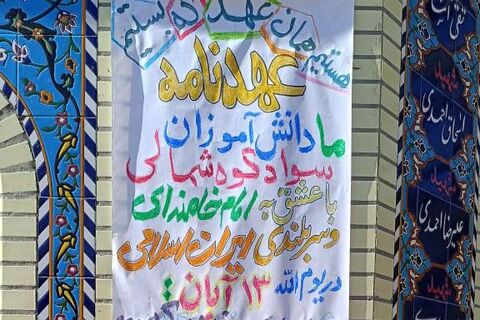 هستیم بر همان عهد که بستیم
عهدنامه
ما دانش آموزان
سوادکوه شمالی
با عشق به امام خامنه ای
و سربلندی ایران اسلامی
در یوم الله ۱۳ آبان
شهید
اسحاق احمدی
شهید
علیرضا احمدی
شهید